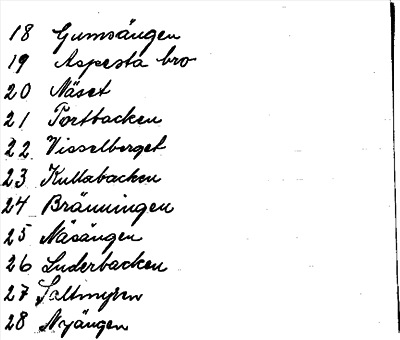 18 Gumsängen
19 Aspesta bro
20 Näset
21 Tortbacken
22 Visselberget
23 Kullabacken
24 Bränningen
25 Näsängen
26 Luderbacken
27 Saltmyren
28 Nyängen